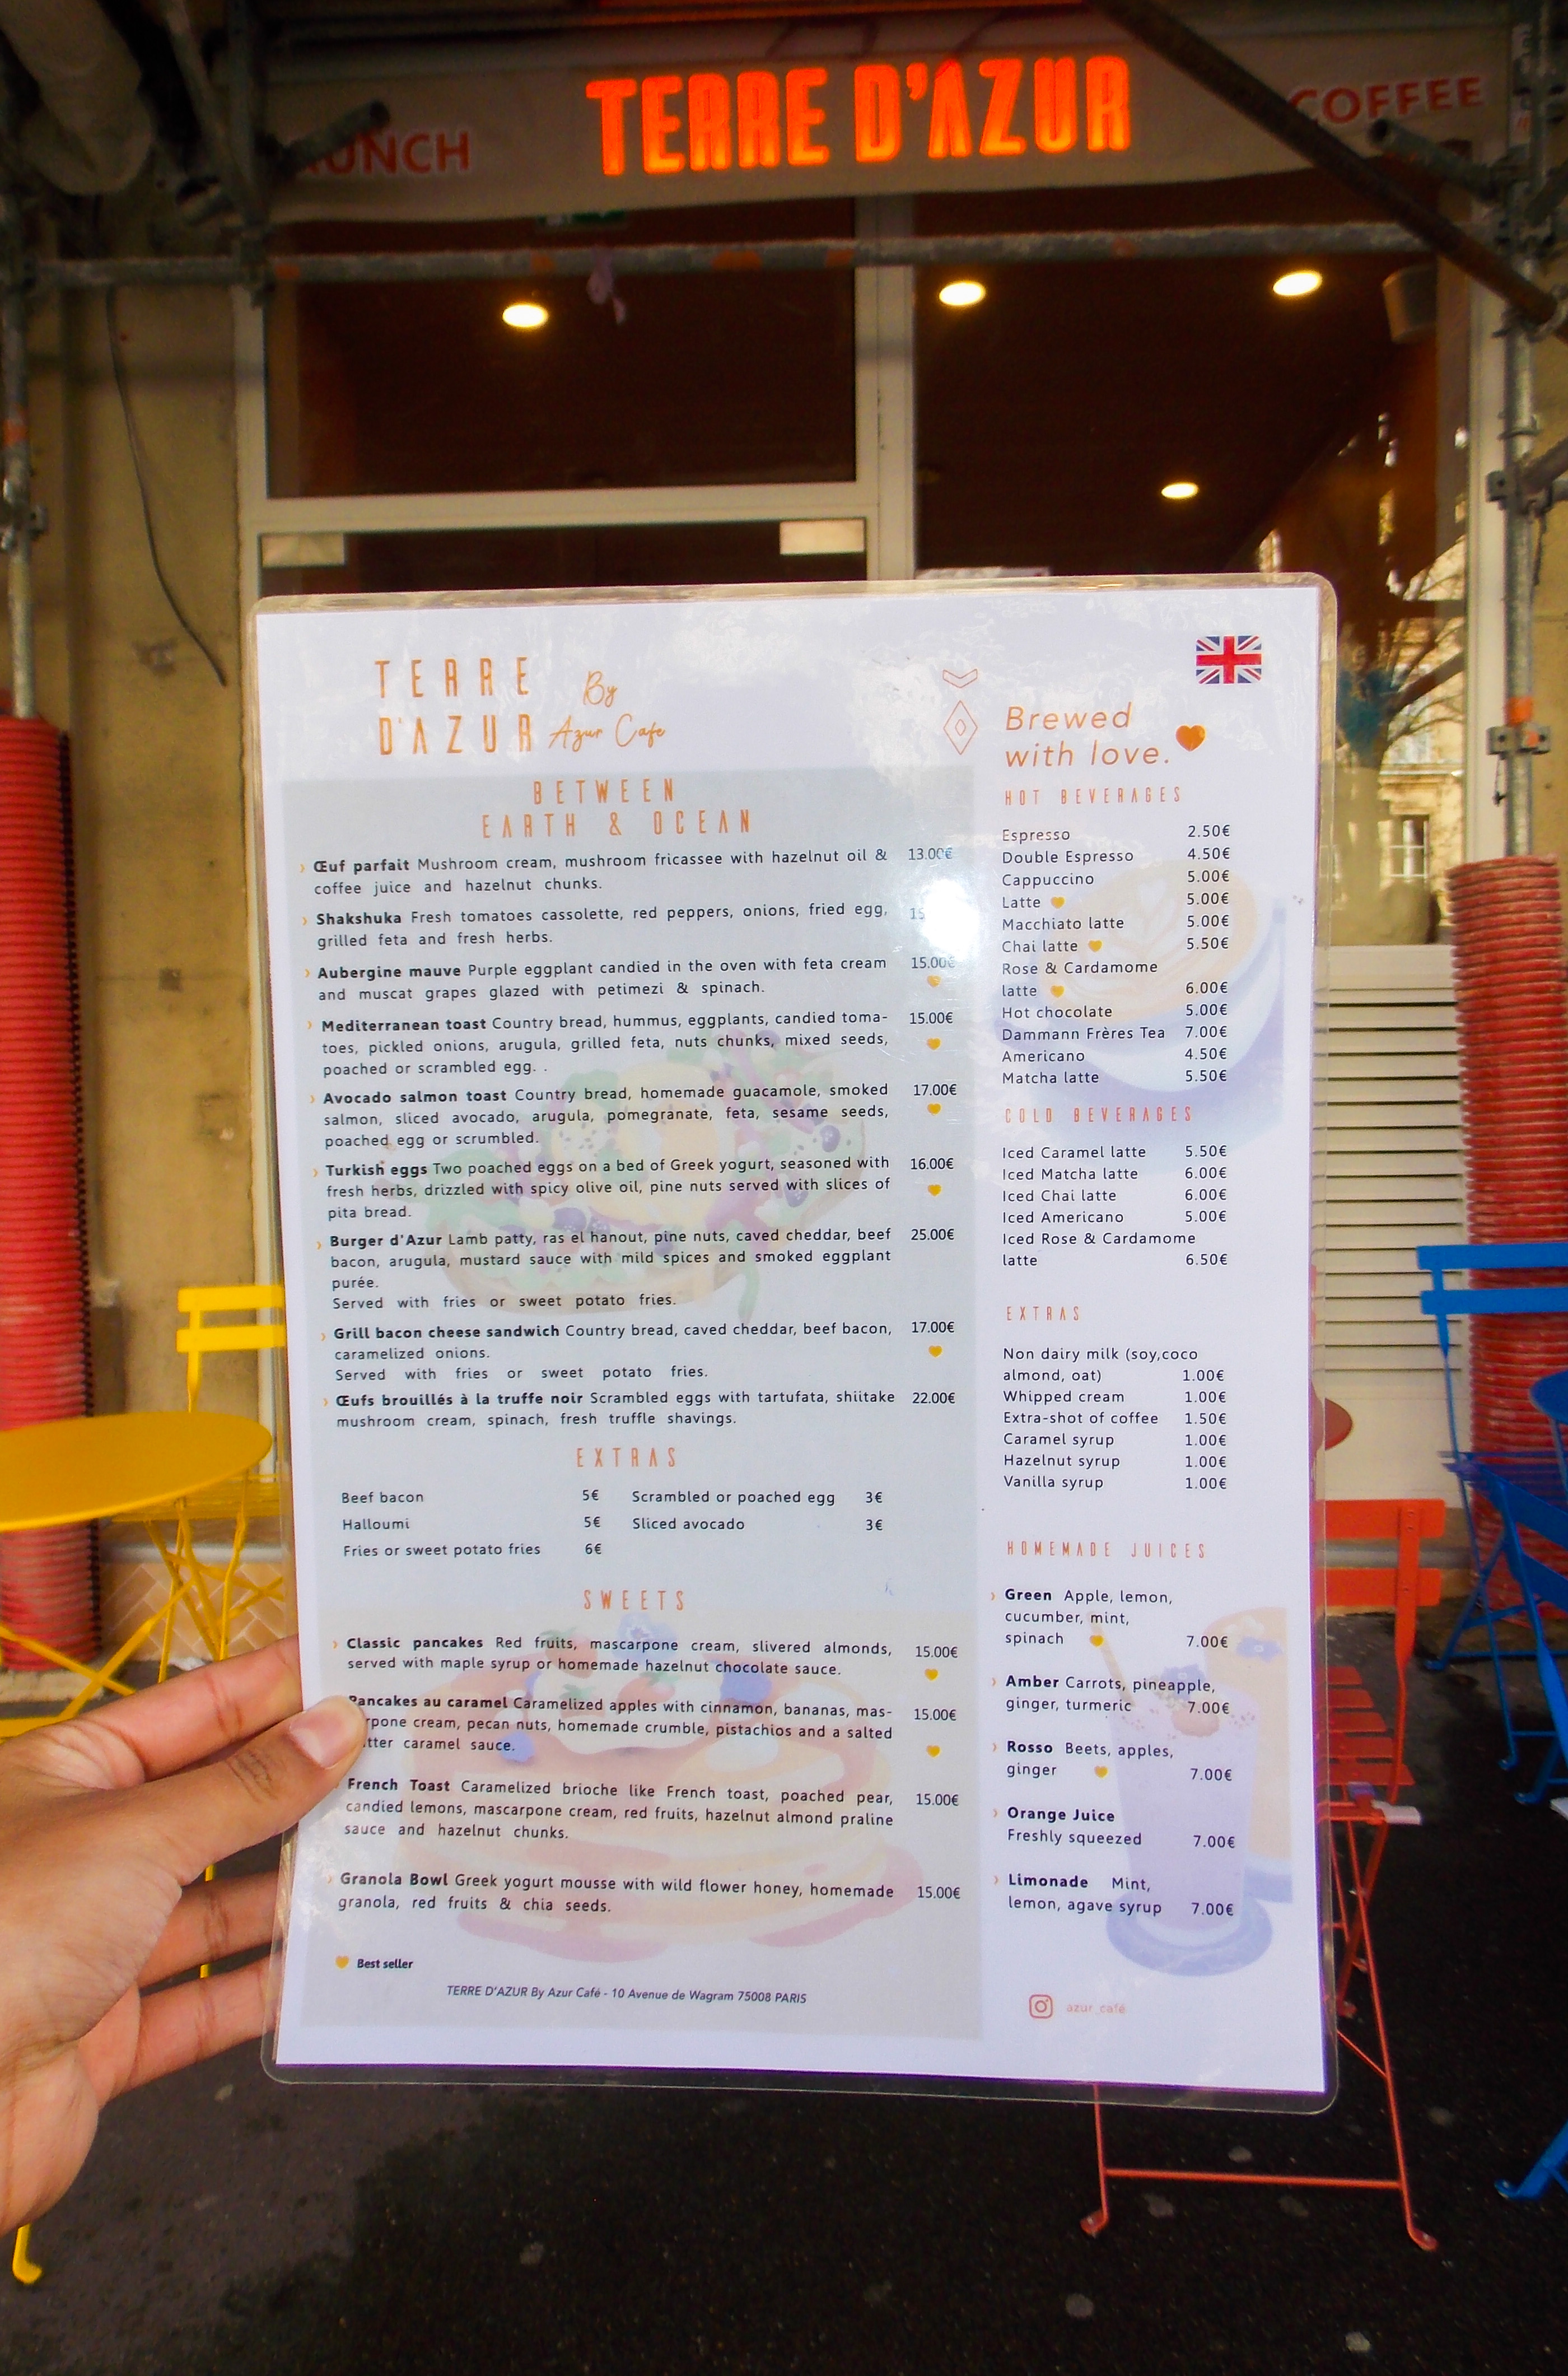 TERRE D'AZUR
COFFEE
TERRE
D'AZUR
By
Azur Cafe
BETWEEN
EARTH & OCEAN
Œuf parfait Mushroom cream, mushroom fricassee with hazelnut oil & 13.00€
coffee juice and hazelnut chunks.
Shakshuka Fresh tomatoes cassolette, red peppers, onions, fried egg,
grilled feta and fresh herbs.
Aubergine mauve Purple eggplant candied in the oven with feta cream 15.00€
and muscat grapes glazed with petimezi & spinach.
Mediterranean toast Country bread, hummus, eggplants, candied toma- 15.00€
toes, pickled onions, arugula, grilled feta, nuts chunks, mixed seeds,
poached or scrambled egg. .
Avocado salmon toast Country bread, homemade guacamole, smoked 17.00€
salmon, sliced avocado, arugula, pomegranate, feta, sesame seeds,
poached egg or scrumbled.
Turkish eggs Two poached eggs on a bed of Greek yogurt, seasoned with 16.00€
fresh herbs, drizzled with spicy olive oil, pine nuts served with slices of
pita bread.
Burger d'Azur Lamb patty, ras el hanout, pine nuts, caved cheddar, beef 25.00€
bacon, arugula, mustard sauce with mild spices and smoked eggplant
purée.
Served with fries or sweet potato fries.
Grill bacon cheese sandwich Country bread, caved cheddar, beef bacon, 17.00€
caramelized onions.
Served with fries or sweet potato fries.
Œufs brouillés à la truffe noir Scrambled eggs with tartufata, shiitake 22.00€
mushroom cream, spinach, fresh truffle shavings.
EXTRAS
Beef bacon 5€ Scrambled or poached egg 3€
Halloumi 5€ Sliced avocado 3€
Fries or sweet potato fries 6€
SWEETS
Classic pancakes Red fruits, mascarpone cream, slivered almonds, 15.00€
served with maple syrup or homemade hazelnut chocolate sauce.
Pancakes au caramel Caramelized apples with cinnamon, bananas, mas- 15.00€
rpone cream, pecan nuts, homemade crumble, pistachios and a salted
tter caramel sauce.
French Toast Caramelized brioche like French toast, poached pear, 15.00€
candied lemons, mascarpone cream, red fruits, hazelnut almond praline
sauce and hazelnut chunks.
Granola Bowl Greek yogurt mousse with wild flower honey, homemade 15.00€
granola, red fruits & chia seeds.
Best seller
TERRE D'AZUR By Azur Café - 10 Avenue de Wagram 75008 PARIS
Brewed
with love.
HOT BEVERAGES
Espresso 2.50€
Double Espresso 4.50€
Cappuccino 5.00€
Latte 5.00€
Macchiato latte 5.00€
Chai latte 5.50€
Rose & Cardamome
latte 6.00€
Hot chocolate 5.00€
Dammann Frères Tea 7.00€
Americano 4.50€
Matcha latte 5.50€
COLD BEVERAGES
Iced Caramel latte 5.50€
Iced Matcha latte 6.00€
Iced Chai latte 6.00€
Iced Americano 5.00€
Iced Rose & Cardamome
latte 6.50€
EXTRAS
Non dairy milk (soy,coco
almond, oat) 1.00€
Whipped cream 1.00€
Extra-shot of coffee 1.50€
Caramel syrup 1.00€
Hazelnut syrup 1.00€
Vanilla syrup 1.00€
HOMEMADE JUICES
Green Apple, lemon,
cucumber, mint,
spinach 7.00€
Amber Carrots, pineapple,
ginger, turmeric 7.00€
Rosso Beets, apples,
ginger 7.00€
Orange Juice
Freshly squeezed 7.00€
Limonade Mint,
lemon, agave syrup 7.00€
azur_café